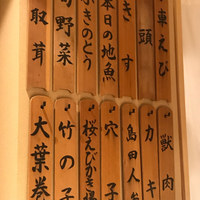 車えび
頭
きす
本日の地魚
ふきのとう
旬野菜
取茸
獣肉
カキ
島田人参
穴子
桜えびかき揚
竹の子
大葉巻